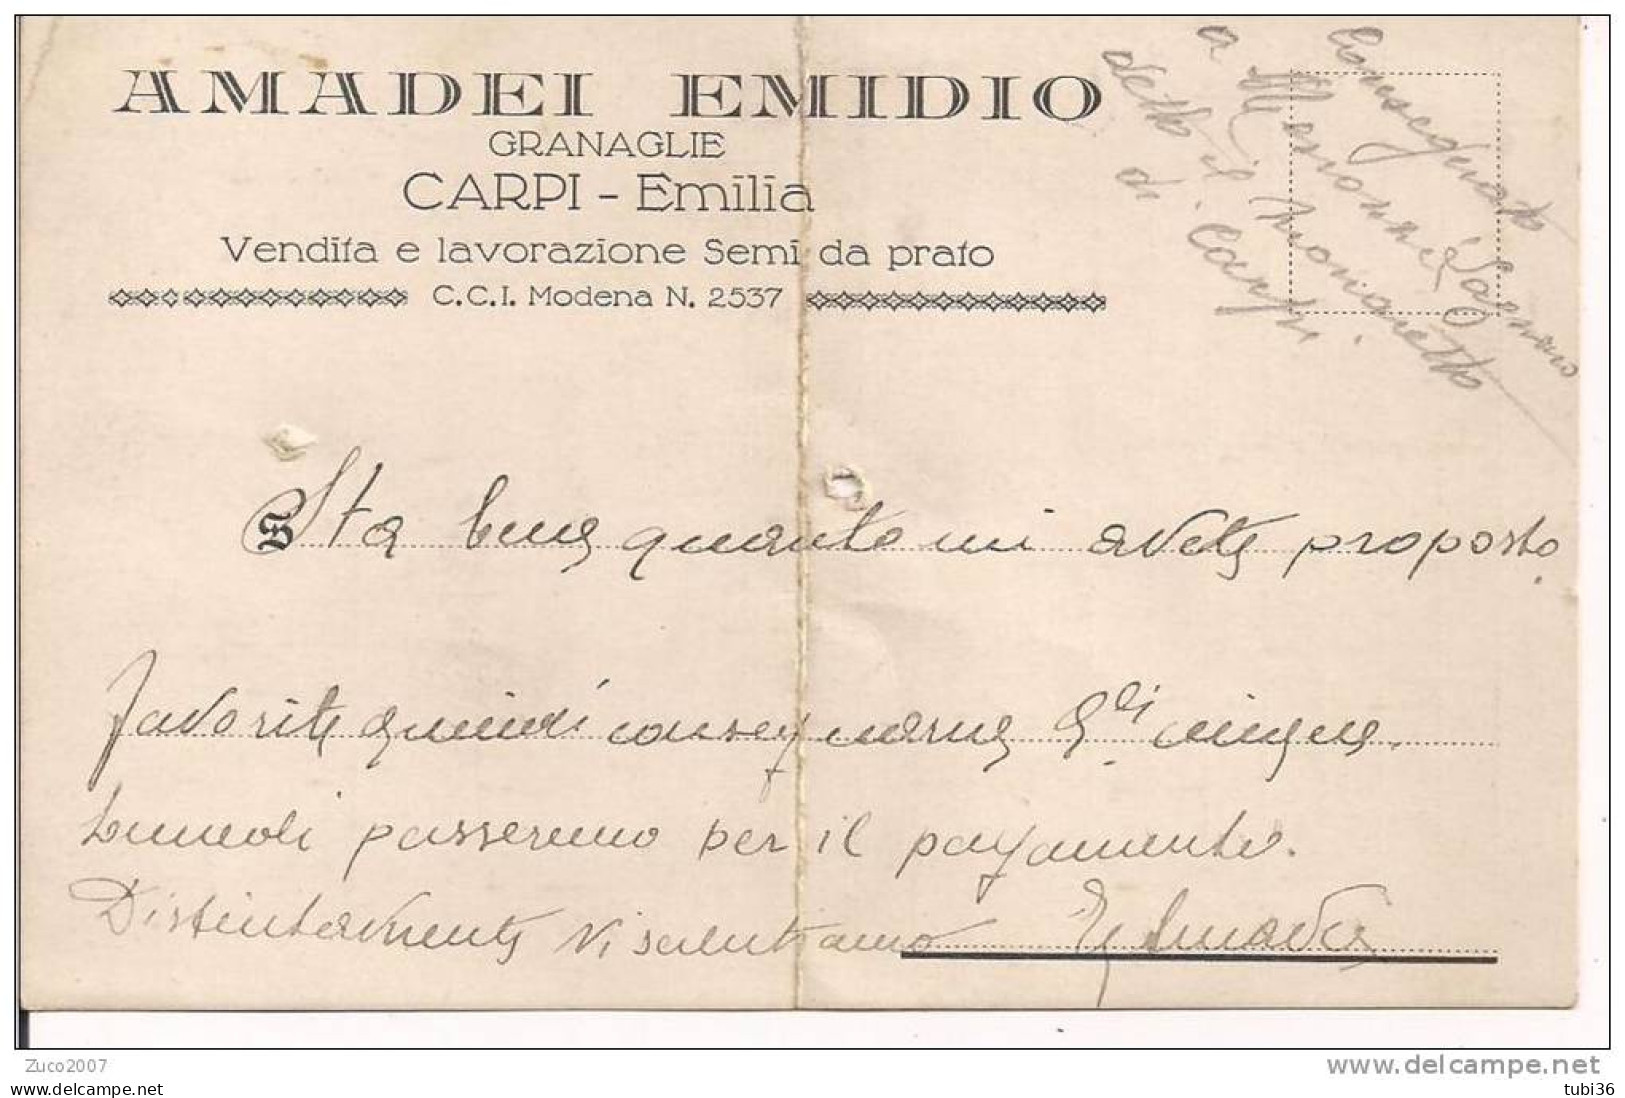 AMADEI EMIDIO
GRANAGLIE
CARPI - Emilia
Vendita e lavorazione Semi da prato
C.C.I. Modena N. 2537
Consegnato
a Messori Lazzaro
detto il
di Carpi.
S Sta bene quanto mi avete proposto.
favorite quindi consegnarne Q.li cinque.
passeremo per il pagamento.
Distintamente Vi salutiamo E Amadei
Zuco2007
www.delcampe.net
tubi36